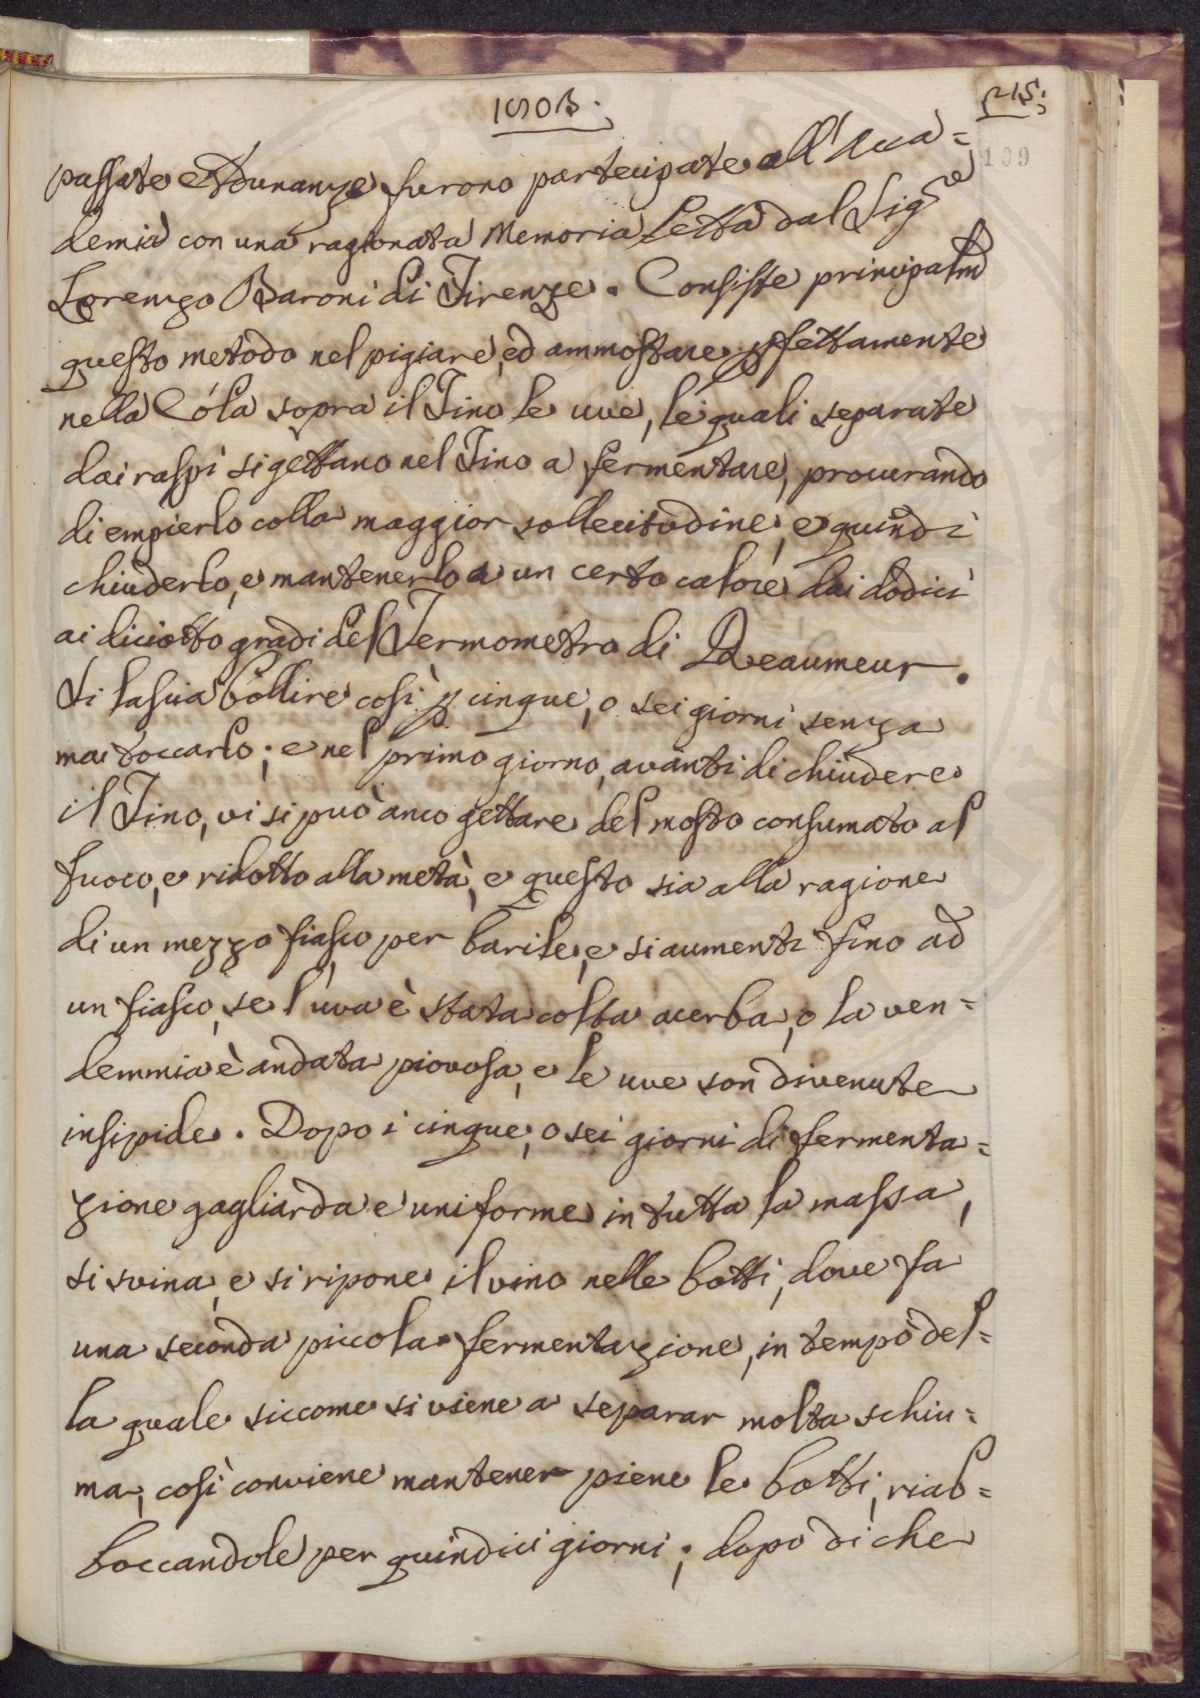 215.
109
passate Adunanze furono partecipate all'Acca=
demia con una ragionata Memoria letta dal Sig.re
Lorenzo Baroni di Firenze. Consiste principalm.
questo metodo nel pigiare, ed ammostare pfettamente
nella Cóla sopra il Tino le uve, le quali separate
dai raspi si gettano nel Tino a fermentare, procurando
di empierlo colla maggior sollecitudine, e quindi
chiuderlo, e mantenerlo a un certo calore dai dodici
ai diciotto gradi del Termometro di Reaumeur.
Si lascia bollire così p cinque, o sei giorni senza
mai toccarlo; e nel primo giorno, avanti di chiudere
il Tino, vi si può anco gettare del mosto consumato al
fuoco, e ridotto alla metà, e questo sia alla ragione
di un mezzo fiasco per barile, e si aumenti fino ad
un fiasco, se l'uva è stata colta acerba, o la ven=
demmia è andata piovosa, e le uve son divenute
insipide. Dopo i cinque, o sei giorni di fermenta=
zione gagliarda e uniforme in tutta la massa,
si svina, e si ripone il vino nelle botti, dove fa
una seconda piccola fermentazione, in tempo del=
la quale siccome si viene a separar molta schiu=
ma, così conviene mantener piene le botti, riab=
boccandole per quindici giorni; dopo di che